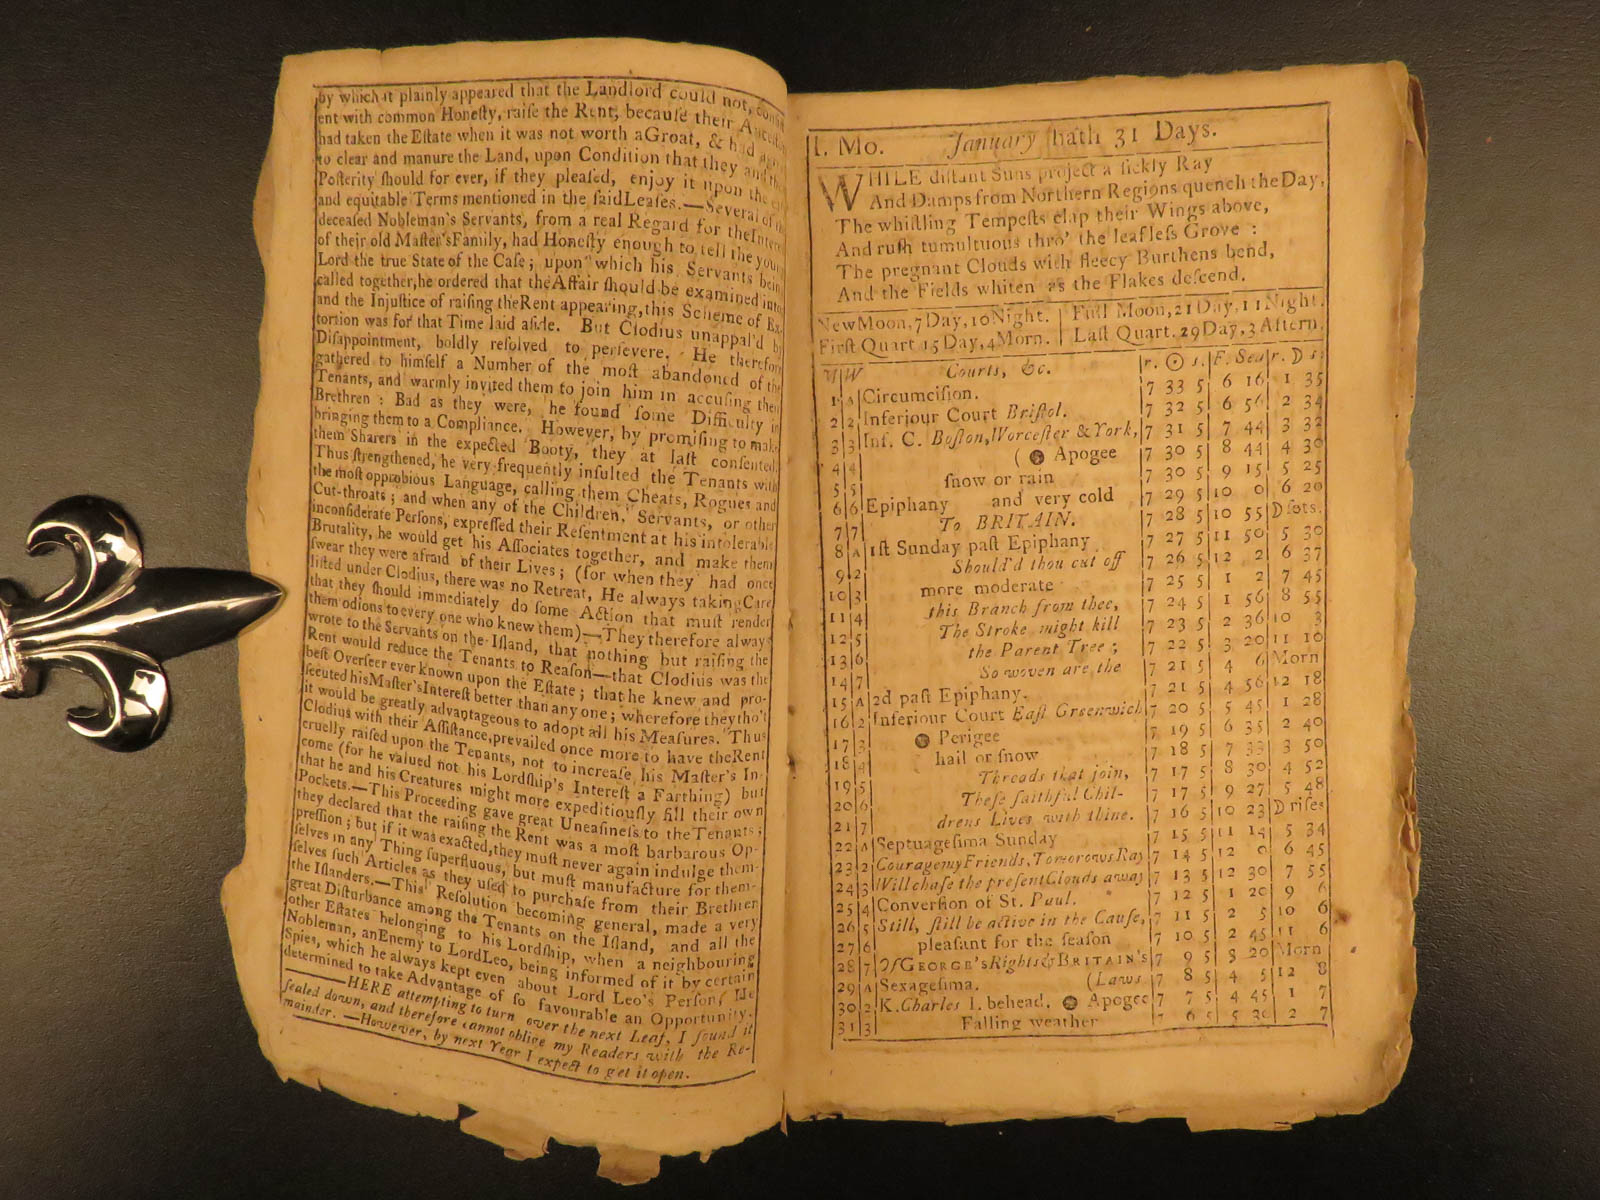 by which it plainly appeared that the Landlord could not,
ent with common Honeſty, raiſe the Rent, becauſe their
had taken the Eſtate when it was not worth a Groat, &
to clear and manure the Land, upon Condition that they and
Poſterity ſhould for ever, if they pleaſed, enjoy it upon the
and equitable Terms mentioned in the ſaid Leaſes.—Several of
deceaſed Nobleman's Servants, from a real Regard for the
of their old Maſter's Family, had Honeſty enough to tell the
Lord the true State of the Caſe; upon which his Servants being
called together, he ordered that the Affair ſhould be examined into
and the Injuſtice of raiſing the Rent appearing, this Scheme of Ex-
tortion was for that Time laid aſide. But Clodius unappal'd by
Diſappointment, boldly reſolved to perſevere. He therefore
gathered to himſelf a Number of the moſt abandoned of the
Tenants, and warmly invited them to join him in accuſing their
Brethren : Bad as they were, he found ſome Difficulty in
bringing them to a Compliance. However, by promiſing to make
them Sharers in the expected Booty, they at laſt conſented.
Thus ſtrengthened, he very frequently inſulted the Tenants with
the moſt opprobious Language, calling them Cheats, Rogues and
Cut-throats; and when any of the Children, Servants, or other
inconſiderate Perſons, expreſſed their Reſentment at his intolerable
Brutality, he would get his Aſſociates together, and make them
ſwear they were afraid of their Lives; (for when they had once
liſted under Clodius, there was no Retreat, He always taking Care
that they ſhould immediately do ſome Action that muſt render
them odious to every one who knew them)—They therefore always
wrote to the Servants on the Iſland, that nothing but raiſing the
Rent would reduce the Tenants to Reaſon—that Clodius was the
beſt Overſeer ever known upon the Eſtate; that he knew and pro-
ſecuted his Maſter's Intereſt better than any one; wherefore they tho't
it would be greatly advantageous to adopt all his Meaſures. Thus
Clodius with their Aſſiſtance, prevailed once more to have the Rent
cruelly raiſed upon the Tenants, not to increaſe his Maſter's In-
come (for he valued not his Lordſhip's Intereſt a Farthing) but
that he and his Creatures might more expeditiouſly fill their own
Pockets.—This Proceeding gave great Uneaſineſs to the Tenants;
they declared that the raiſing the Rent was a moſt barbarous Op-
preſſion; but if it was exacted, they muſt never again indulge them-
ſelves in any Thing ſuperfluous, but muſt manufacture for them-
ſelves ſuch Articles as they uſed to purchaſe from their Brethren
the Iſlanders.—This Reſolution becoming general, made a very
great Diſturbance among the Tenants on the Iſland, and all the
other Eſtates belonging to his Lordſhip, when a neighbouring
Nobleman, an Enemy to Lord Leo, being informed of it by certain
Spies, which he always kept even about Lord Leo's Perſon, He
determined to take Advantage of ſo favourable an Opportunity.
—HERE attempting to turn over the next Leaf, I found it
ſealed down, and therefore cannot oblige my Readers with the Re-
mainder. —However, by next Year I expect to get it open.
I. Mo. January hath 31 Days.
WHILE diſtant Suns project a ſickly Ray
And Damps from Northern Regions quench the Day,
The whiſtling Tempeſts clap their Wings above,
And ruſh tumultuous thro' the leafleſs Grove :
The pregnant Clouds with fleecy Burthens bend,
And the Fields whiten as the Flakes deſcend.
New Moon, 7 Day, 10 Night. Full Moon, 21 Day, 11 Night.
Firſt Quart 15 Day, 4 Morn. Laſt Quart. 29 Day, 3 Aftern.
M W Courts, &c. r. ☉ s. F. Sea r. ☽ s.
1 A Circumciſion. 7 33 5 6 16 1 35
2 2 Inferiour Court Briſtol. 7 32 5 6 56 2 34
3 3 Inf. C. Boſton, Worceſter & York, 7 31 5 7 44 3 32
4 4 ( ● Apogee 7 30 5 8 44 4 30
5 5 ſnow or rain 7 30 5 9 15 5 25
6 6 Epiphany and very cold 7 29 5 10 0 6 20
7 7 To BRITAIN. 7 28 5 10 55 ☽ ſets.
8 A 1ſt Sunday paſt Epiphany 7 27 5 11 50 5 30
9 2 Should'd thou cut off 7 26 5 12 2 6 37
10 3 more moderate 7 25 5 1 2 7 45
11 4 this Branch from thee, 7 24 5 1 56 8 55
12 5 The Stroke might kill 7 23 5 2 36 10 3
13 6 the Parent Tree ; 7 22 5 3 20 11 10
14 7 So woven are the 7 21 5 4 6 Morn
15 A 2d paſt Epiphany. 7 21 5 4 56 12 18
16 2 Inferiour Court Eaſt Greenwich 7 20 5 5 45 1 28
17 3 ● Perigee 7 19 5 6 35 2 40
18 4 hail or ſnow 7 18 5 7 33 3 50
19 5 Threads that join, 7 17 5 8 30 4 52
20 6 Theſe faithful Chil- 7 17 5 9 27 5 48
21 7 drens Lives with thine. 7 16 5 10 23 ☽ riſes
22 A Septuageſima Sunday 7 15 5 11 14 5 34
23 2 Courage my Friends, Tomorows Ray 7 14 5 12 0 6 45
24 3 Will chaſe the preſent Clouds away 7 13 5 12 30 7 55
25 4 Converſion of St. Paul. 7 12 5 1 20 9 6
26 5 Still, ſtill be active in the Cauſe, 7 11 5 2 5 10 6
27 6 pleaſant for the ſeaſon 7 10 5 2 45 11 6
28 7 Of GEORGE's Rights & BRITAIN's 7 9 5 3 20 Morn
29 A Sexageſima. (Laws 7 8 5 4 5 12 8
30 2 K. Charles I. behead. ● Apogee 7 7 5 4 45 1 7
31 3 Falling weather 7 6 5 5 30 2 7